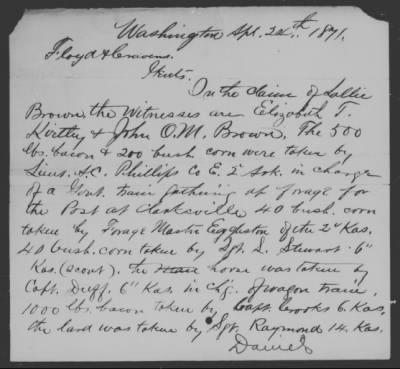 Washington Spt. 22th. 1871.
Floyd & Cravens.
On the claim of Sallie
Brown, the Witnesses are Elizabeth T.
Kirttey & John O.M. Brown. The 500
lbs. bacon & 200 bush corn were taken by
Lieut. A.C. Phillips Co E. 2" Ark. in charge
of a Govt. train gathering up forage for
the Post at Clarksville 40 bush. corn
taken by Forage Master Eggleston of the 2" Kas.
40 bush. corn taken by Sgt. L. Stewart 6"
Kas. (scout). the horse was taken by
Capt. Duff. 6" Kas. in chg. of wagon train.
1000 lbs. bacon taken by Capt. Crooks 6. Kas.
the lard was taken by Sgt. Raymond 14. Kas.
Daniels